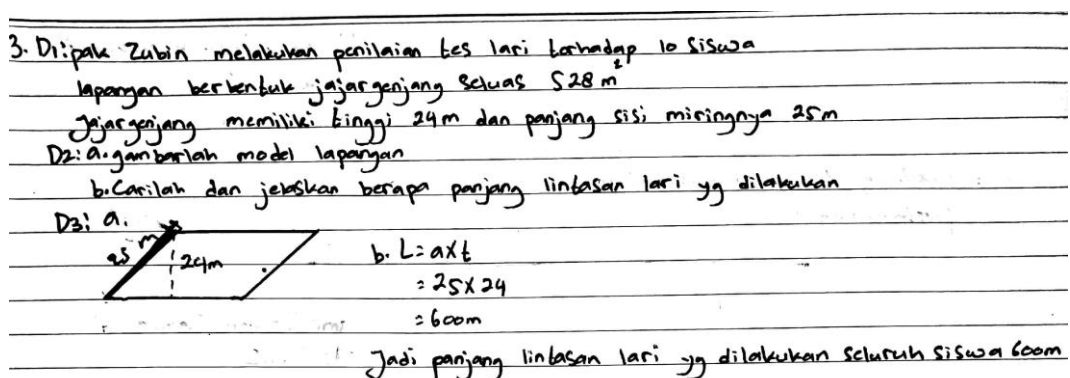 3. D1: pak Zubin melakukan penilaian tes lari terhadap 10 siswa
lapangan berbentuk jajar genjang seluas 528 m²
Jajar genjang memiliki tinggi 24 m dan panjang sisi miringnya 25 m
D2: a. gambarlah model lapangan
b. Carilah dan jelaskan berapa panjang lintasan lari yg dilakukan
D3: a.
25 m
24m
b. L = a x t
= 25 x 24
= 600m
Jadi panjang lintasan lari yg dilakukan seluruh siswa 600m